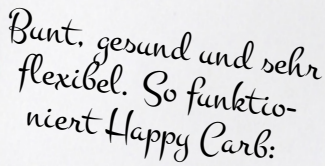 Bunt, gesund und sehr
flexibel. So funktio-
niert Happy Carb: